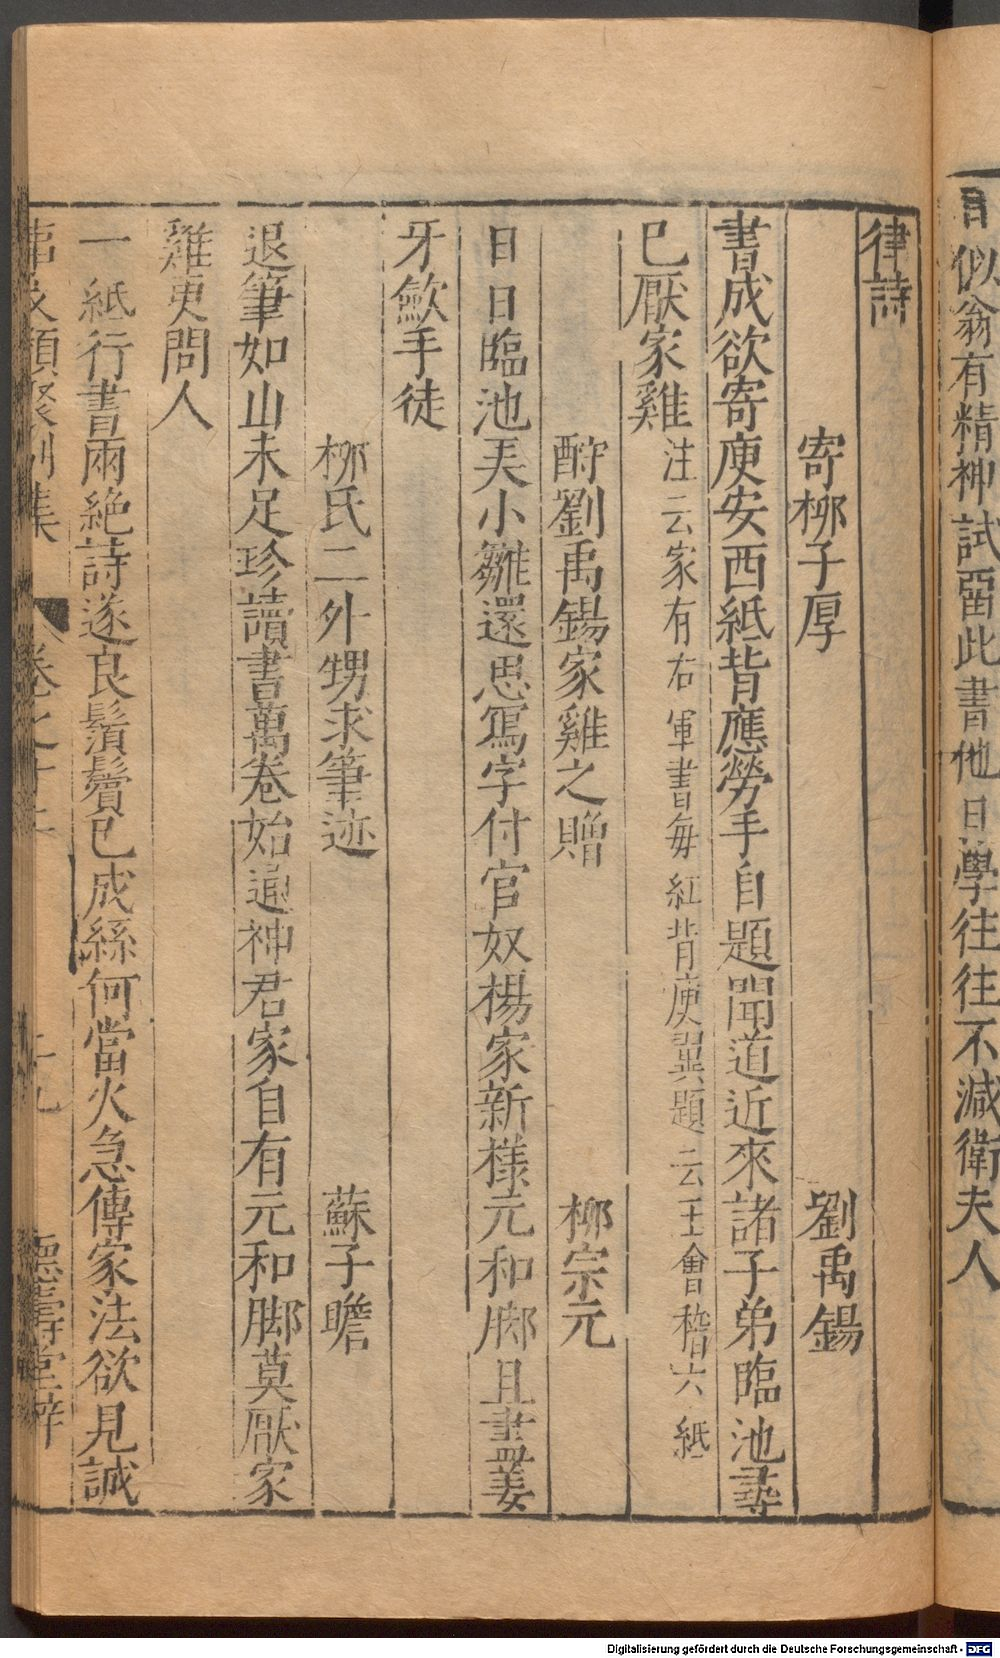 目似翁有精神試留此書他日學往往不減衛夫人
律詩
寄柳子厚 劉禹錫
書成欲寄庾安西紙背應勞手自題聞道近來諸子弟臨池尋
已厭家雞 注云家有右軍書每紅背庾翼題云王會稽六紙
酧劉禹錫家雞之贈 柳宗元
日日臨池美小雛還思寫字付官奴楊家新樣元和脚且盡姜
牙歛手徒
柳氏二外甥求筆迹 蘇子瞻
退筆如山未足珍讀書萬卷始通神君家自有元和脚莫厭家
雞更問人
一紙行書兩絶詩遂良鬚鬢已成絲何當火急傳家法欲見誠
事文類聚別集 卷之十二 二九 德壽堂梓
Digitalisierung gefördert durch die Deutsche Forschungsgemeinschaft - DFG